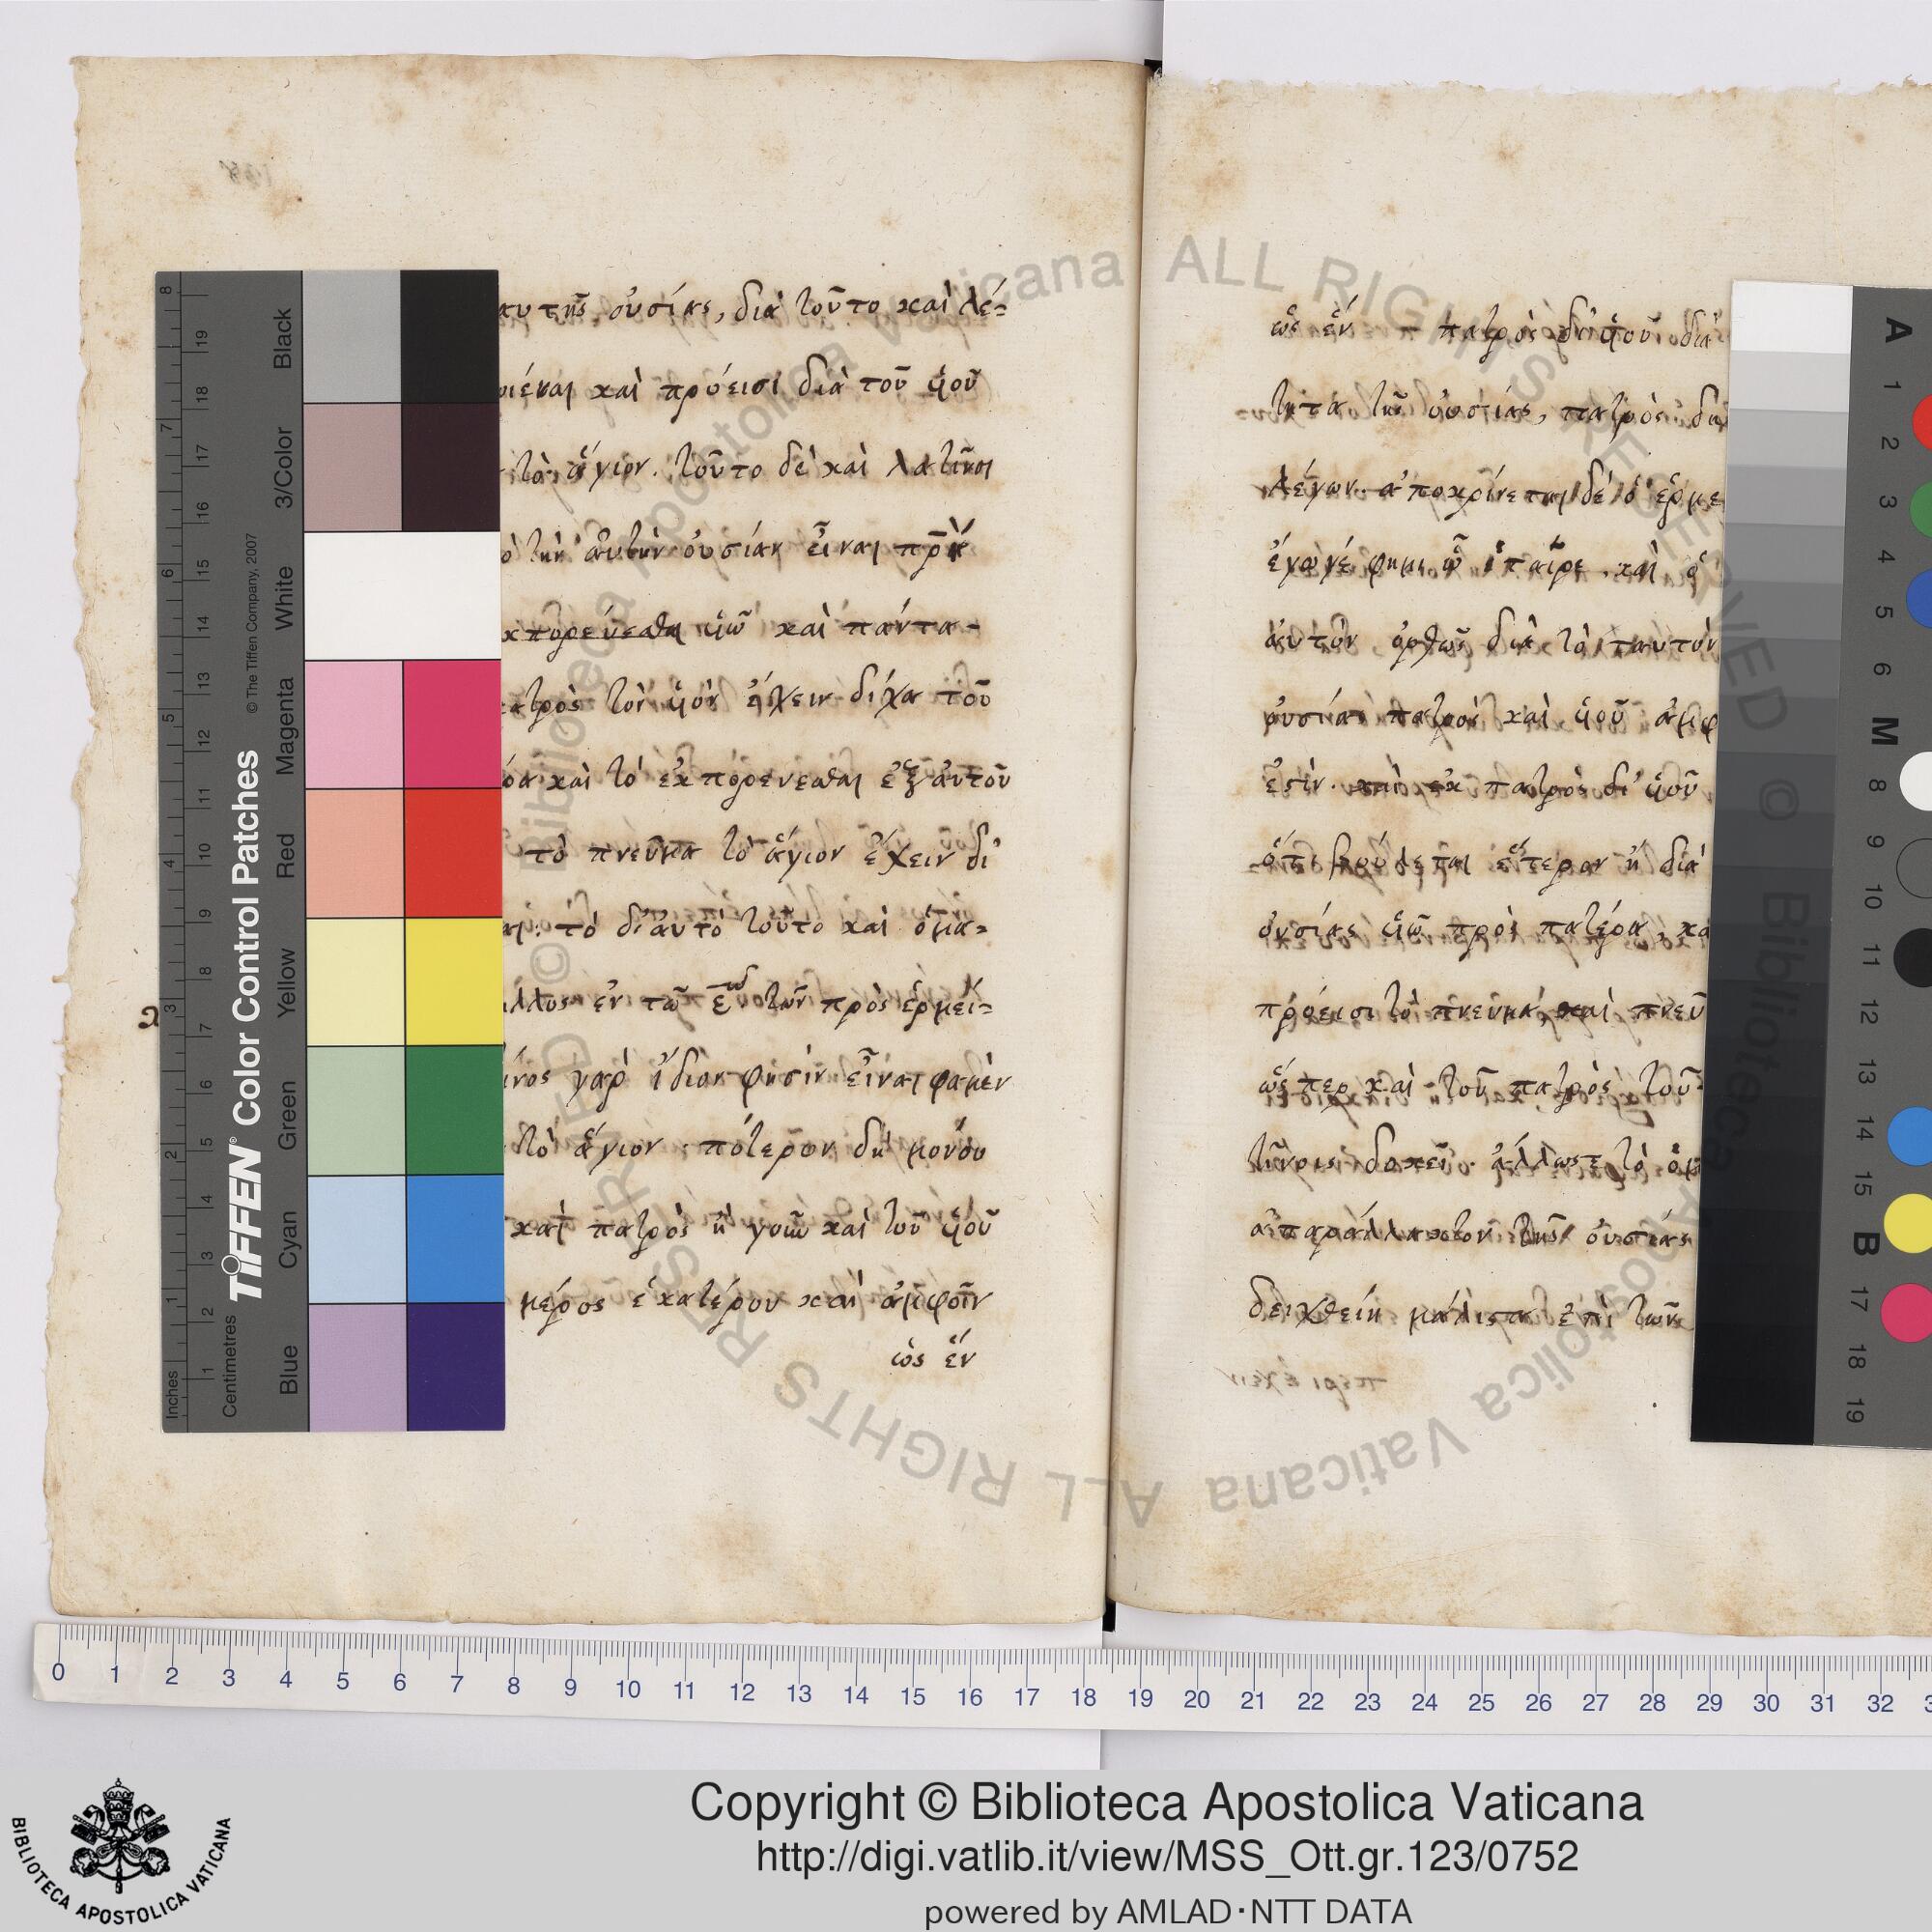 αυτῆς οὐσίας, διὰ τοῦτο καὶ λέ=
ιέναι καὶ πρόεισι διὰ τοῦ ὑιοῦ
τὸ ἅγιον. τοῦτο δὲ καὶ λατῖνοι
τὴν αὐτὴν οὐσίαν εἶναι πρ̅κ̀
κπορεύεσθαι ὑιῶ καὶ πάντα-
ατρὸς τὸν ὑιὸν ἔχειν δίχα τοῦ
καὶ τὸ ἐκπορεύεσθαι ἐξ αὐτοῦ
τὸ πνεῦμα τὸ ἅγιον ἔχειν δι'
τὸ δι' αὐτὸ τοῦτο καὶ ὁμα=
λλος ἐν τῶ ε̅ῳ τῶν πρὸς ἑρμεί=
ίνος γὰρ ἴδιον φησὶν εἶναι φαμὲν
τὸ ἅγιον πότερον δὴ μονου
καὶ πατρὸς ἢ γοῦν καὶ τοῦ ὑιοῦ
μέρος ἑκατέρου καὶ ἀμφοῖν
ὡς ἕν
ὡς ἕν πατρὸς δι' ὑιοῦ διὰ
τητα τῆς οὐσίας, πατρὸς δη
λέγων. ἀποκρίνεται δὲ ὁ ἑρμε
ἔγωγέ φημι ὦ ἑταῖρε. καὶ
αὐτὸν ὀρθῶς διὰ τὸ ταυτὸν
οὐσίας πατρὸς καὶ ὑιοῦ ἀμφ
ἐστὶν. καὶ ἐκ πατρὸς δι' ὑιοῦ
ὅτι βούλεται ἕτερον ἢ διὰ
οὐσίας ὑιῶ πρὸς πατέρα, κα
πρόεισι τὸ πνεῦμα, καὶ πνεῦ
ὥσπερ καὶ τοῦ πατρὸς τοῦ
τίνοις δοκεῖ. ἄλλωστε τὸ ὁμ
ἀπαράλλακτον τῆς οὐσίας
δειχθείη μάλιστα ἐπὶ τῶν
TIFFEN® Color Control Patches
© The Tiffen Company, 2007
Inches
Centimetres
Blue Cyan Green Yellow Red Magenta White 3/Color Black
A 1 2 3 4 5 6 M 8 9 10 11 12 13 14 15 B 17 18 19
0 1 2 3 4 5 6 7 8 9 10 11 12 13 14 15 16 17 18 19 20 21 22 23 24 25 26 27 28 29 30 31 32
BIBLIOTECA APOSTOLICA VATICANA
Copyright © Biblioteca Apostolica Vaticana
http://digi.vatlib.it/view/MSS_Ott.gr.123/0752
powered by AMLAD·NTT DATA